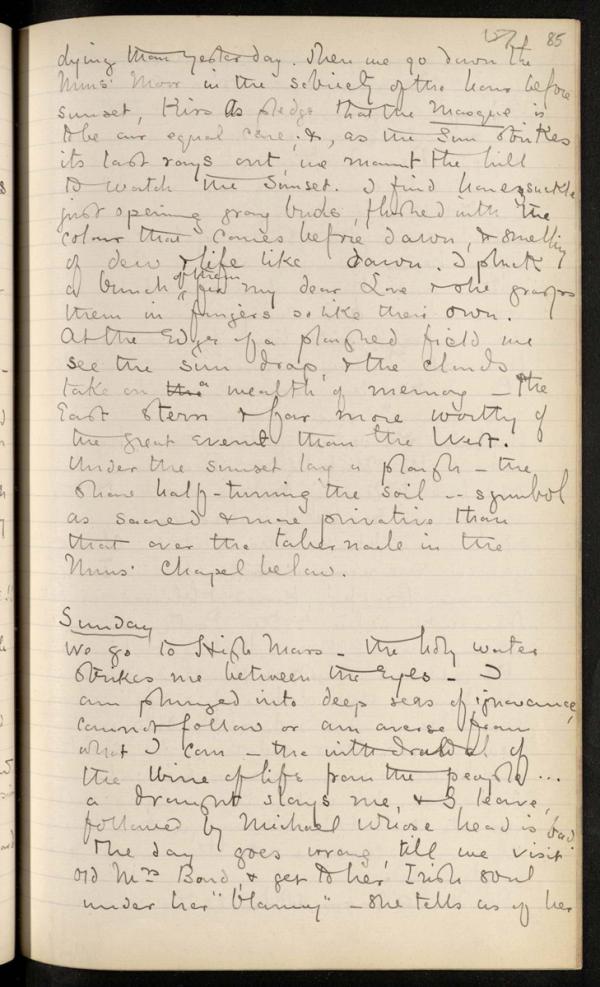 157 85
dying than yesterday. Then we go down the
Nuns' Moor in the sobriety of the hour before
sunset, Kiss as pledge that the Masque is
to be our equal care, &, as the Sun strikes
its last rays out, we mount the hill
to watch the Sunset. I find honeysuckle
just opening gray buds, flushed with the
colour that comes before dawn, & smelling
of dew & life like dawn. I pluck
a bunch of them for my dear Love & she grasps
them in fingers so like their own.
At the Edge of a ploughed field we
see the sun drop, & the clouds
take on the a wealth of memory – the
East stern & far more worthy of
the great event than the West.
Under the sunset lay a plough – the
share half-turning the soil – symbol
as sacred & more primitive than
that over the tabernacle in the
Nuns' Chapel below.
Sunday
We go to High Mass – the holy water
strikes me between the Eyes – I
am plunged into deep seas of ignorance,
cannot follow or am averse from
what I can – the withdrawal of
the Wine of life from the people ...
a draught slays me, & I leave,
followed by Michael whose head is bad
The day goes wrong, till we visit
old Mrs Bond, & get to her Irish soul
under her "blarney" – she tells us of her